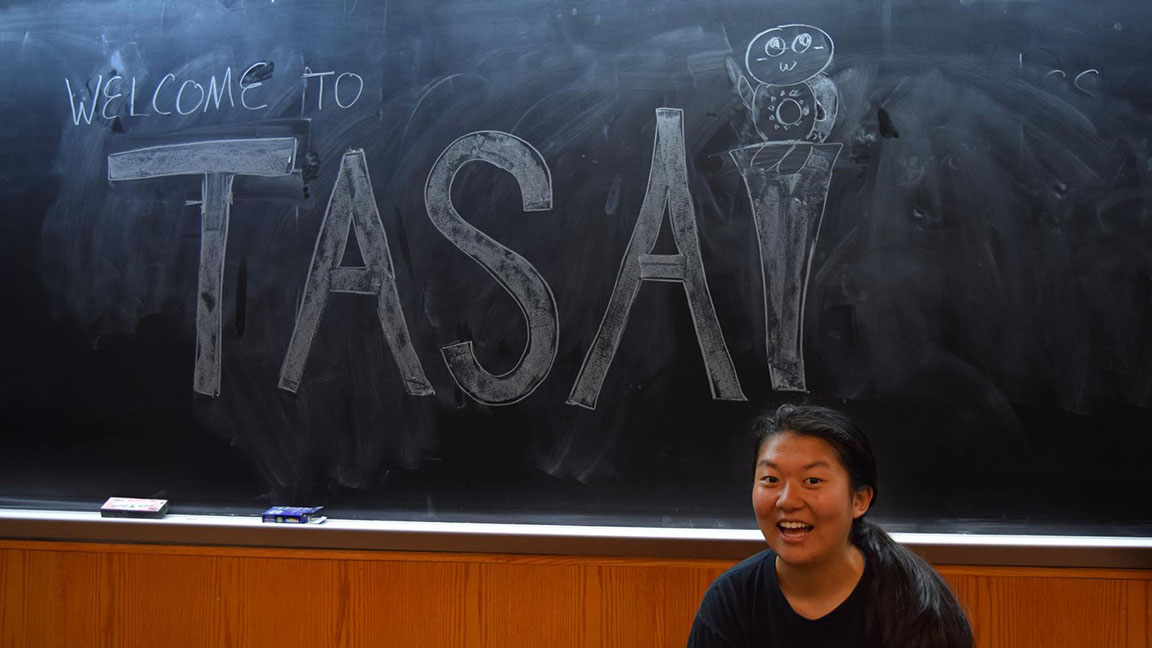 WELCOME TO
TASAI